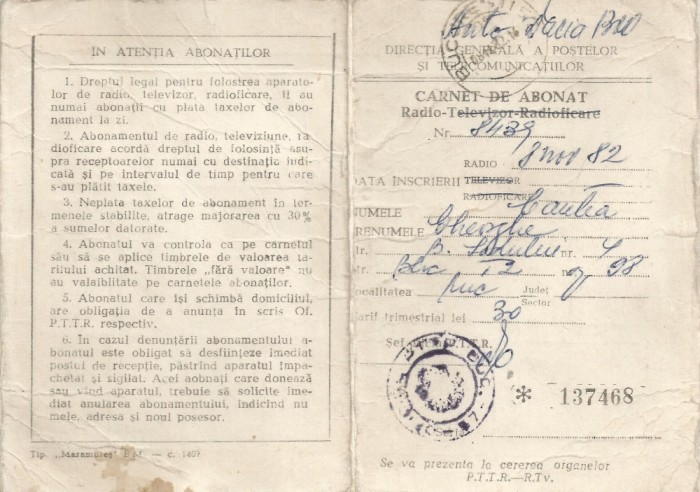 IN ATENȚIA ABONAȚILOR
1. Dreptul legal pentru folosirea aparate-
lor de radio, televizor, radioficare, îl au
numai abonații cu plata taxelor de abo-
nament la zi.
2. Abonamentul de radio, televiziune, ra-
dioficare acordă dreptul de folosință asu-
pra receptoarelor numai cu destinație indi-
cată și pe intervalul de timp pentru care
s-au plătit taxele.
3. Neplata taxelor de abonament în ter-
menele stabilite, atrage majorarea cu 30%
a sumelor datorate.
4. Abonatul va controla ca pe carnetul
său să se aplice timbrele de valoarea ta-
rifului achitat. Timbrele „fără valoare" nu
au valabilitate pe carnetele abonaților.
5. Abonatul care își schimbă domiciliul,
are obligația de a anunța în scris Of.
P.T.T.R. respectiv.
6. În cazul denunțării abonamentului a-
bonatul este obligat să desființeze imediat
postul de recepție, păstrînd aparatul împa-
chetat și sigilat. Acei aobnați care donează
sau vînd aparatul, trebuie să solicite ime-
diat anularea abonamentului, indicînd nu
mele, adresa și noul posesor.
Tip. „Maramureș" B.M. — c. 1407
Auto Dacia
DIRECȚIA GENERALĂ A POȘTELOR
ȘI TELECOMUNICAȚIILOR
CARNET DE ABONAT
Radio-Televizor-Radioficare
Nr. 8439
RADIO 3 nov 82
DATA ÎNSCRIERII TELEVIZOR
RADIOFICARE
NUMELE
PRENUMELE Gheorghe
tr. nr. 4
tr. Bloc
ocalitatea Buc Județ
Sector
arif trimestrial lei 30
Șef P.T.T.R.
* 137468
Se va prezenta la cererea organelor
P.T.T.R.—R.Tv.